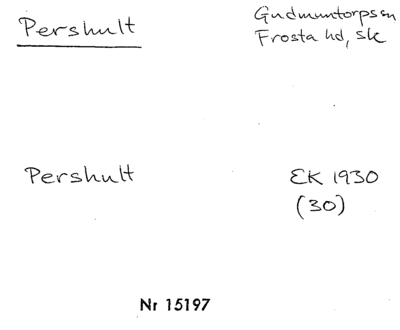 Pershult
Gudmuntorps sn
Frosta hd, sk
Pershult
EK 1930
(30)
Nr 15197